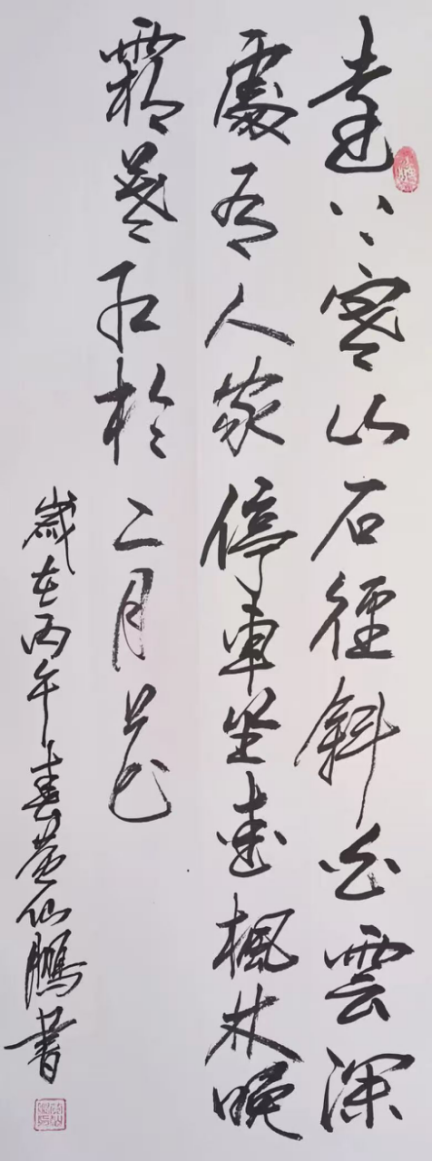 遠上寒山石徑斜白雲深
處有人家停車坐愛楓林晚
霜葉紅於二月花
歲在丙午春黄仙鵬書